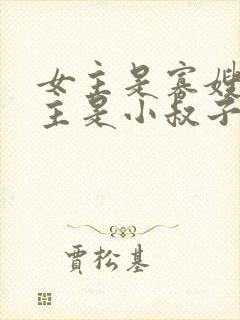 女主是寡嫂
主是小叔子
贾松基